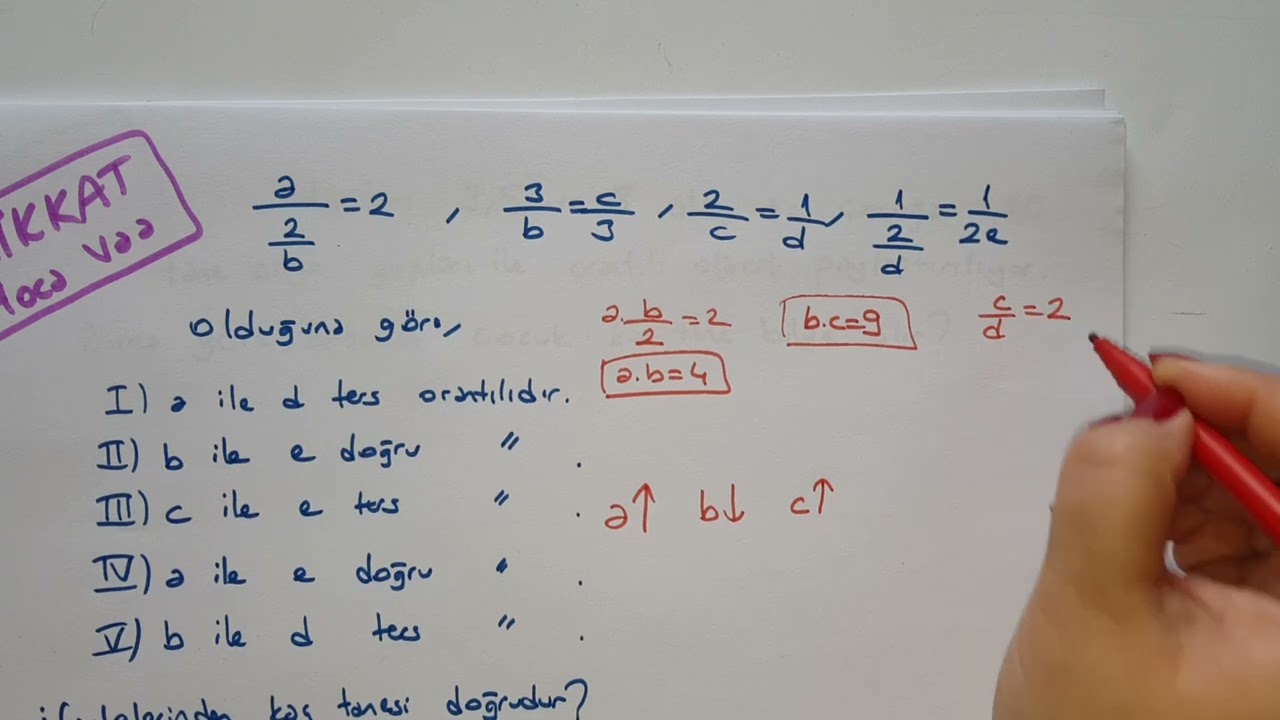 İKKAT
Hoca var
a/(2/b) = 2 , 3/b = c/3 , 2/c = 1/d , 1/(2/d) = 1/2e
Olduğuna göre,
a.b/2 = 2
b.c=9
c/d = 2
a.b=4
I) a ile d ters orantılıdır.
II) b ile e doğru " .
III) c ile e ters " .
a↑ b↓ c↑
IV) a ile e doğru " .
V) b ile d ters " .
ifadelerinden kaç tanesi doğrudur?